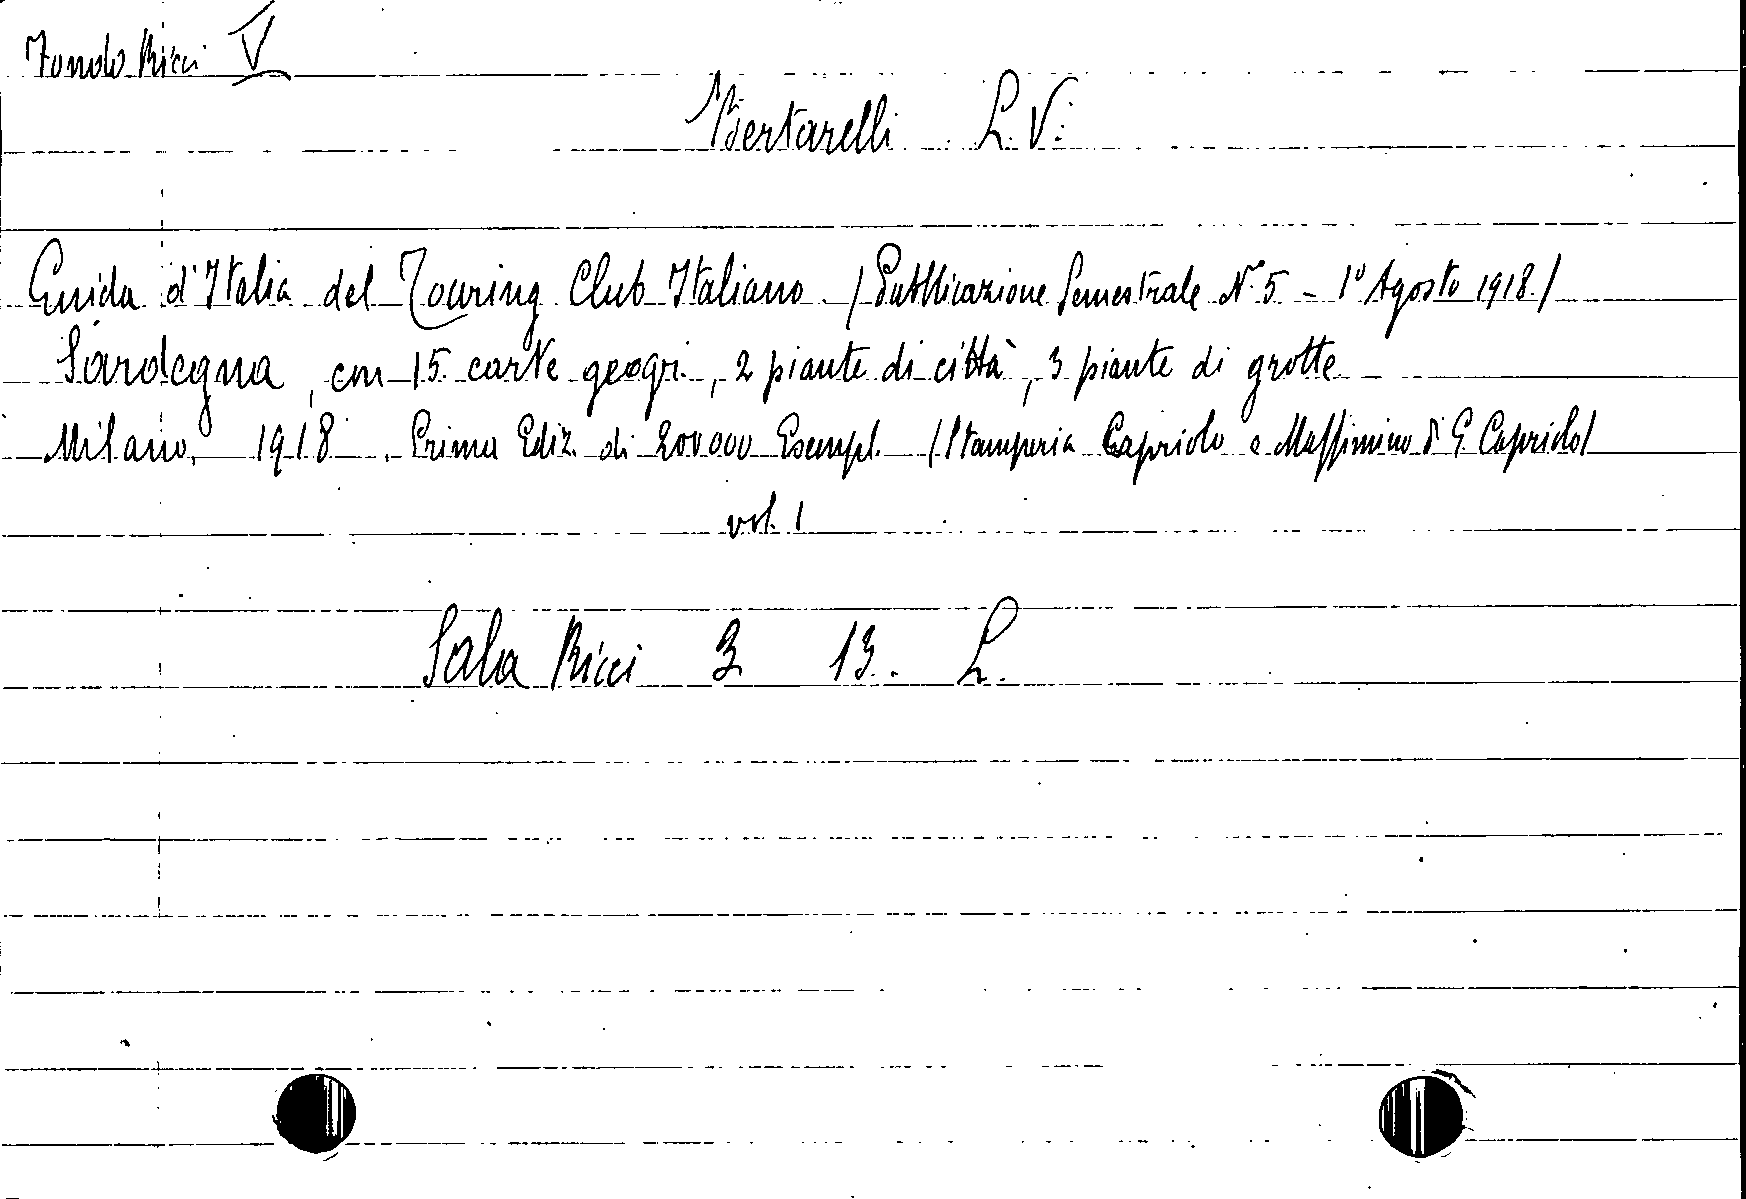 Fondo Ricci V
Bertarelli L. V.
Guida d'Italia del Touring Club Italiano / Pubblicazione Semestrale N. 5 - 1° Agosto 1918 /
Sardegna, con 15 carte geogr., 2 piante di città, 3 piante di grotte
Milano, 1918. Prima Ediz. di 200000 Esempl. (Stamperia Capriolo e Massimino di G. Capriolo)
vol. 1
Sala Ricci 3 13. L.